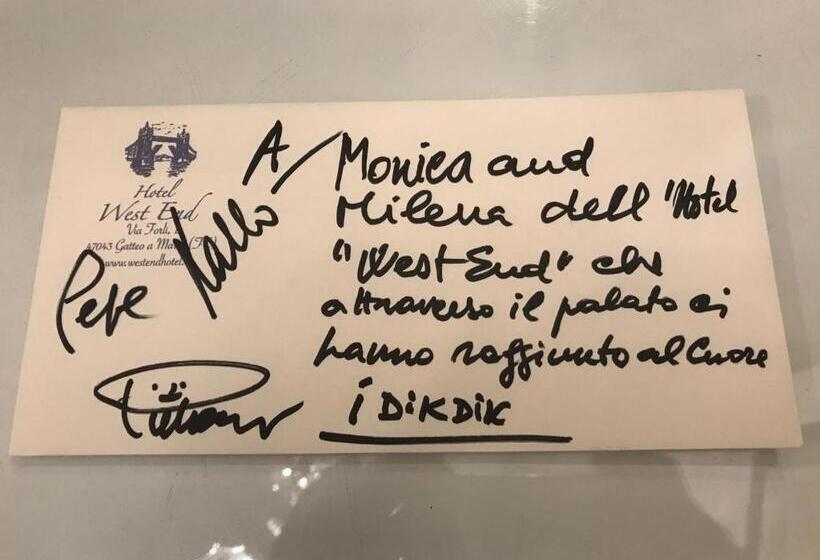 Hotel
West End
Via Forlì,
47043 Gatteo a Mare
www.westendhotel.
Pepe
A/Monica and
Milena dell'Hotel
"West End" che
attraverso il palato ci
hanno raggiunto al Cuore
i DiKDiK